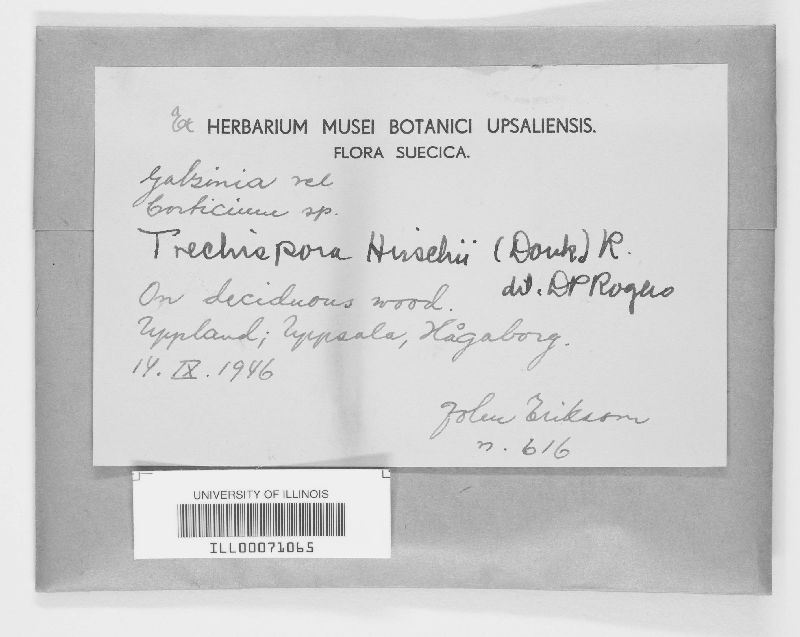 Ex HERBARIUM MUSEI BOTANICI UPSALIENSIS.
FLORA SUECICA.
Galzinia vel
Corticium sp.
Trechispora Hirschii (Donk) R.
det. DPRogers
On deciduous wood.
Uppland; Uppsala, Hågaborg.
14. IX. 1946
John Eriksson
n. 616
UNIVERSITY OF ILLINOIS
ILL00071065